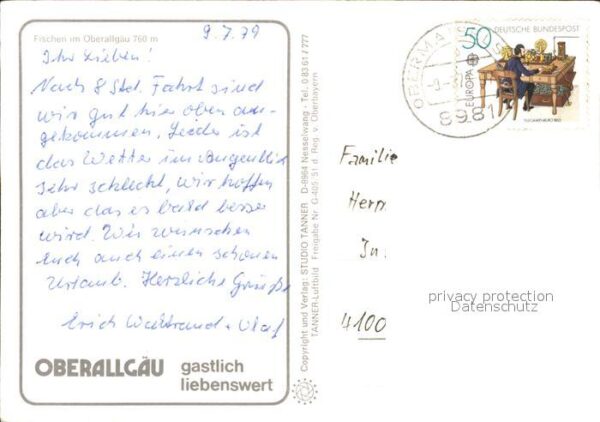 Fischen im Oberallgäu 760 m
9.7.79
Ihr Lieben!
Nach 8 Std. Fahrt sind
wir gut hier oben an-
gekommen. Leider ist
das Wetter im Augenblick
sehr schlecht, wir hoffen
aber das es bald besser
wird. Wir wünschen
Euch auch einen schönen
Urlaub. Herzliche Grüße
Erich Waltraud + Olaf
OBERALLGÄU gastlich
liebenswert
Copyright und Verlag: STUDIO TANNER D-8964 Nesselwang - Tel. 0 83 61 / 777
TANNER-Luftbild Freigabe Nr. G-405/51 d. Reg. v. Oberbayern
50 DEUTSCHE BUNDESPOST
EUROPA
8981
Familie
Herm
In
4100
privacy protection
Datenschutz